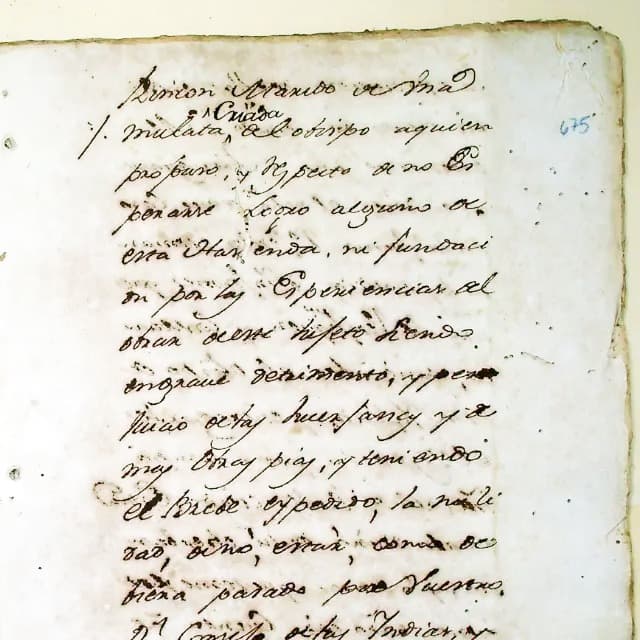 Rincon Marido de una
mulata, Criada del obispo aquien
675
propuso, y respecto de no Es
perarse Logro alguno de
esta Hazienda, ni fundaci
on por las Experiencias del
obrar deeste sujeto siendo
engrave detrimento, y per
juicio delas huerfanas y de
mas obras pias, y teniendo
el Brebe expedido, la nuli
dad, deno, estar, como de
biera pasado por Vuestro
Rl Consejo delas Indias, y